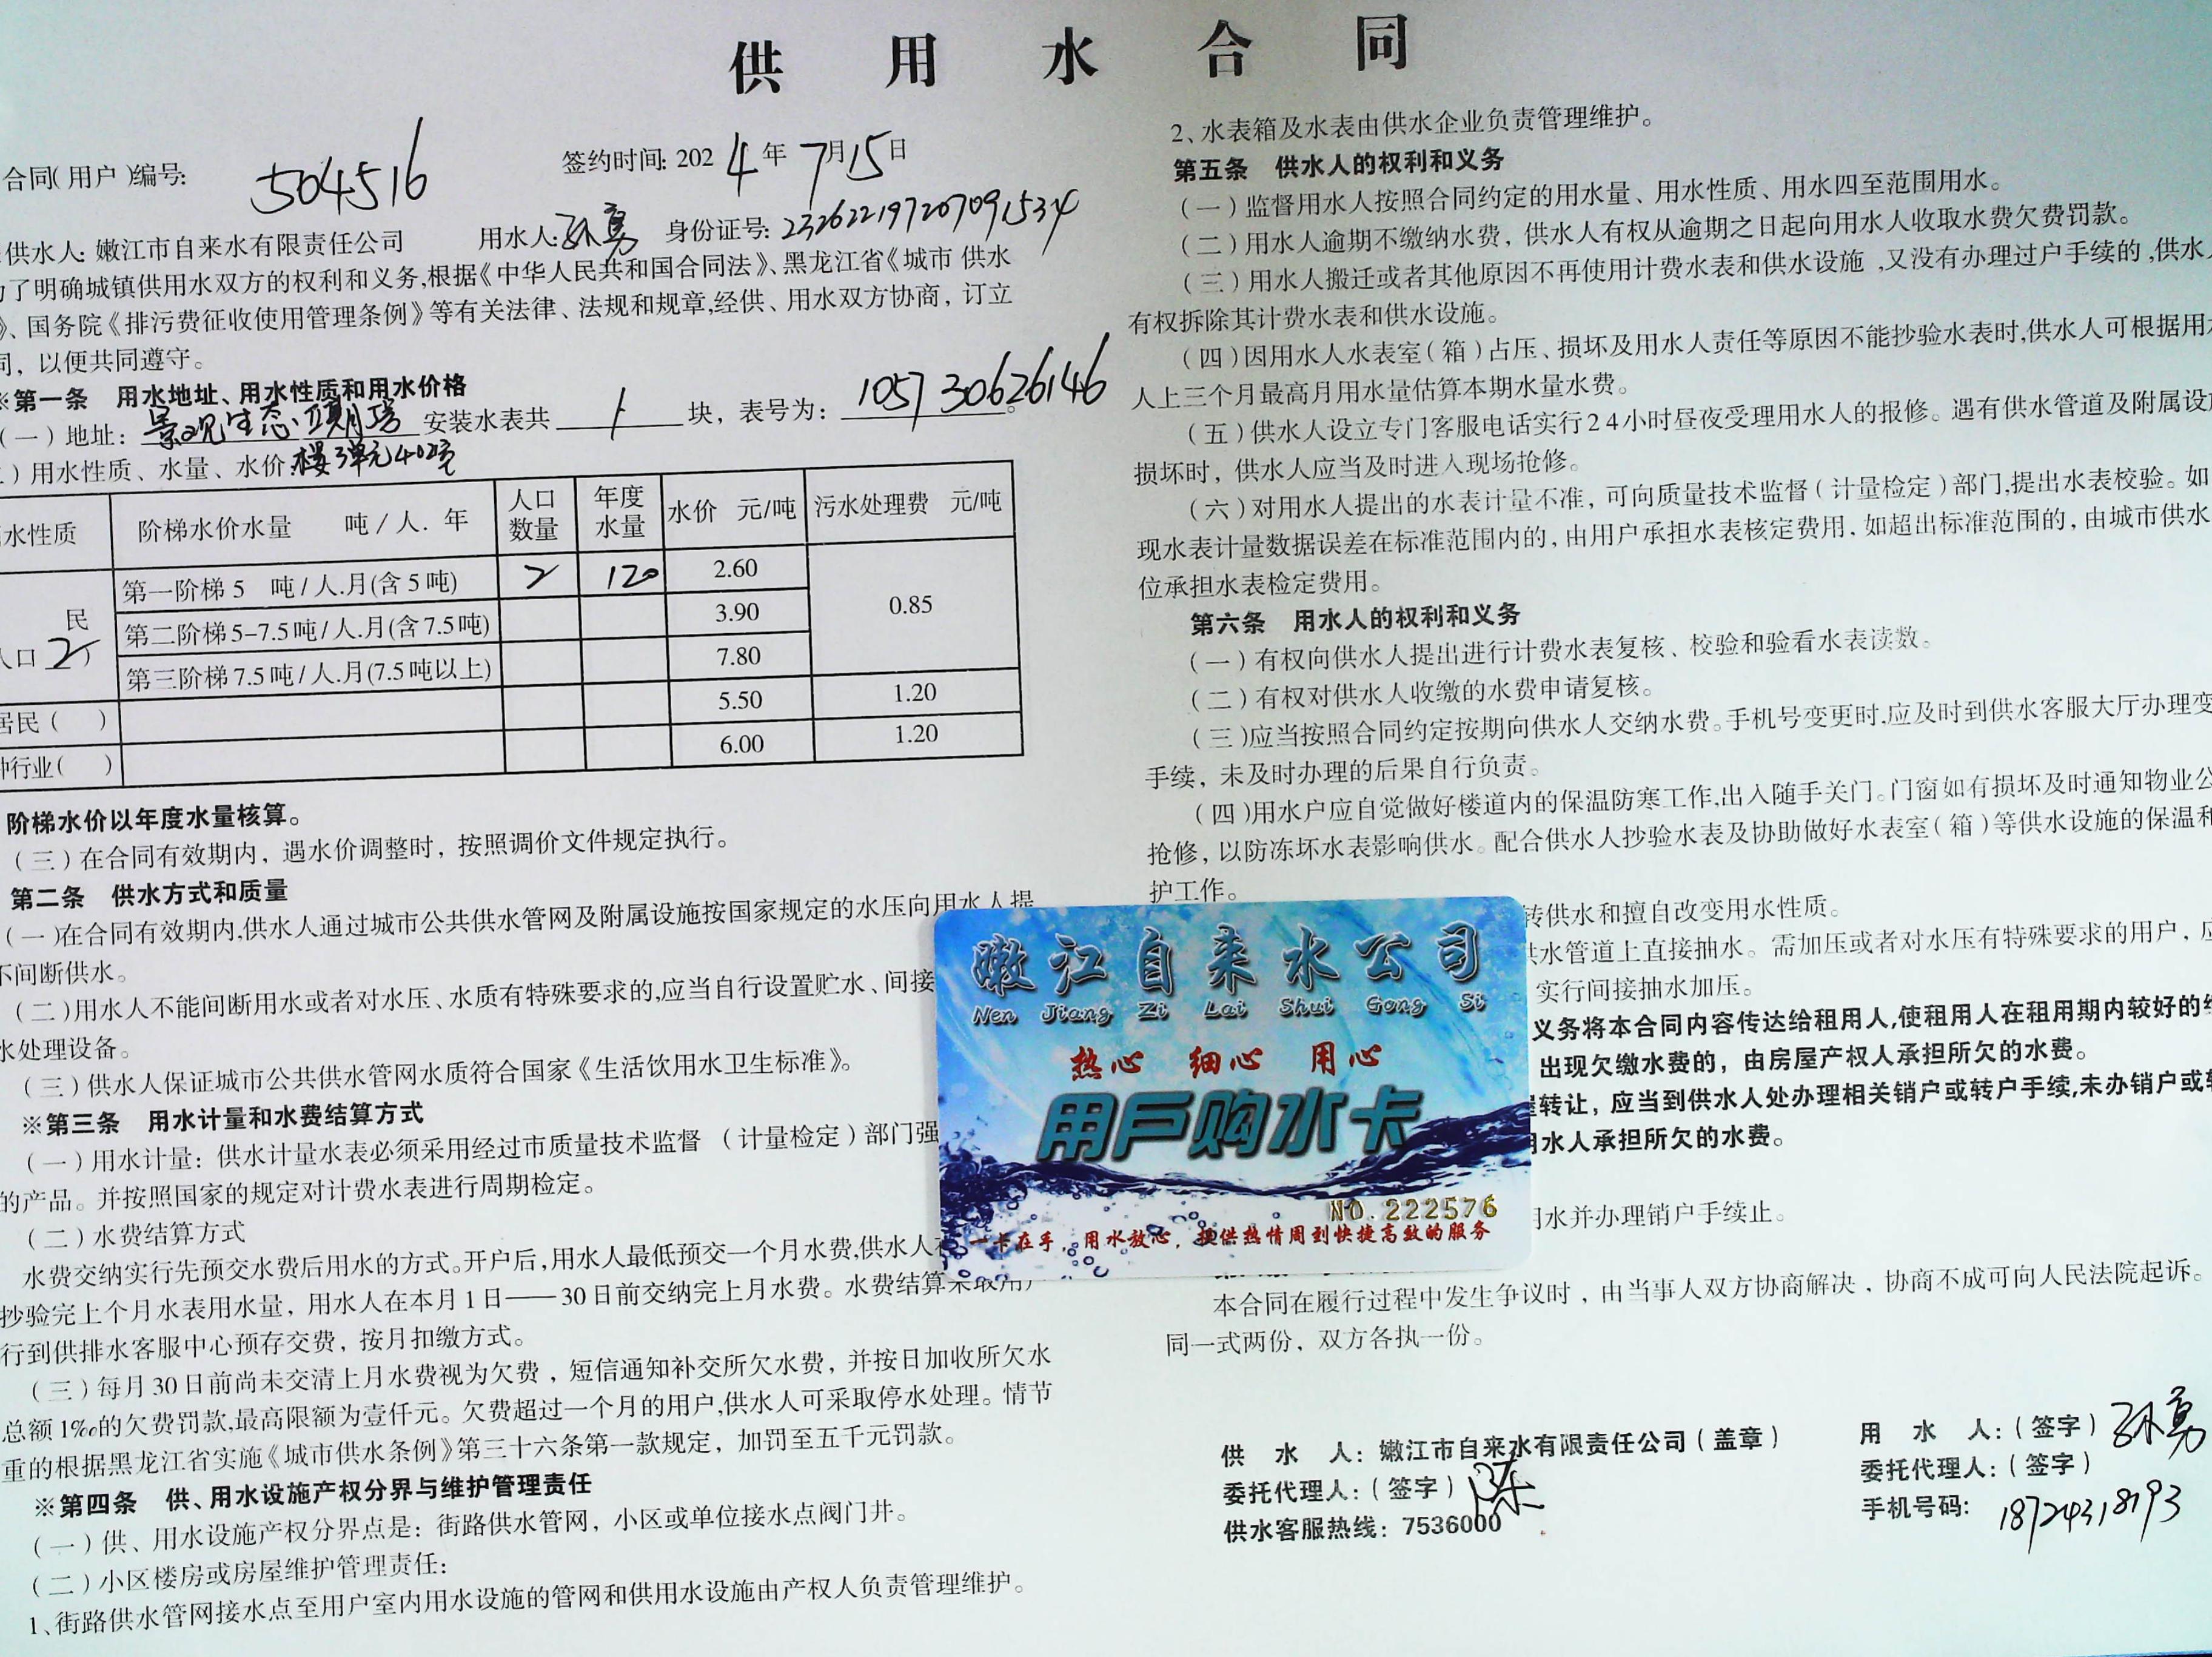 供用水合同
合同(用户)编号: 504516
签约时间: 2024年7月15日
供水人: 嫩江市自来水有限责任公司 用水人: 孙勇 身份证号: 232622197207091534
了明确城镇供用水双方的权利和义务,根据《中华人民共和国合同法》、黑龙江省《城市 供水
》、国务院《排污费征收使用管理条例》等有关法律、法规和规章,经供、用水双方协商，订立
同，以便共同遵守。
※第一条 用水地址、用水性质和用水价格
(一)地址: 景观生态 安装水表共 1 块，表号为: 105730626146
)用水性质、水量、水价 楼3单元402室
水性质 阶梯水价水量 吨/人. 年 人口数量 年度水量 水价 元/吨 污水处理费 元/吨
民
人口 2)
第一阶梯5 吨/人.月(含5吨) 2 120 2.60 0.85
第二阶梯5-7.5吨/人.月(含7.5吨) 3.90
第三阶梯7.5吨/人.月(7.5吨以上) 7.80
居民( ) 5.50 1.20
种行业( ) 6.00 1.20
阶梯水价以年度水量核算。
(三)在合同有效期内，遇水价调整时，按照调价文件规定执行。
第二条 供水方式和质量
(一)在合同有效期内,供水人通过城市公共供水管网及附属设施按国家规定的水压向用水人提
不间断供水。
(二)用水人不能间断用水或者对水压、水质有特殊要求的,应当自行设置贮水、间接
水处理设备。
(三)供水人保证城市公共供水管网水质符合国家《生活饮用水卫生标准》。
※第三条 用水计量和水费结算方式
(一)用水计量: 供水计量水表必须采用经过市质量技术监督 (计量检定)部门强
的产品。并按照国家的规定对计费水表进行周期检定。
(二)水费结算方式
水费交纳实行先预交水费后用水的方式。开户后,用水人最低预交一个月水费,供水人
抄验完上个月水表用水量，用水人在本月1日——30日前交纳完上月水费。水费结算采取用户
行到供排水客服中心预存交费，按月扣缴方式。
(三)每月30日前尚未交清上月水费视为欠费，短信通知补交所欠水费，并按日加收所欠水
总额1‰的欠费罚款,最高限额为壹仟元。欠费超过一个月的用户,供水人可采取停水处理。情节
重的根据黑龙江省实施《城市供水条例》第三十六条第一款规定，加罚至五千元罚款。
※第四条 供、用水设施产权分界与维护管理责任
(一)供、用水设施产权分界点是: 街路供水管网，小区或单位接水点阀门井。
(二)小区楼房或房屋维护管理责任:
1、街路供水管网接水点至用户室内用水设施的管网和供用水设施由产权人负责管理维护。
2、水表箱及水表由供水企业负责管理维护。
第五条 供水人的权利和义务
(一)监督用水人按照合同约定的用水量、用水性质、用水四至范围用水。
(二)用水人逾期不缴纳水费，供水人有权从逾期之日起向用水人收取水费欠费罚款。
(三)用水人搬迁或者其他原因不再使用计费水表和供水设施，又没有办理过户手续的,供水人
有权拆除其计费水表和供水设施。
(四)因用水人水表室(箱)占压、损坏及用水人责任等原因不能抄验水表时,供水人可根据用水
人上三个月最高月用水量估算本期水量水费。
(五)供水人设立专门客服电话实行24小时昼夜受理用水人的报修。遇有供水管道及附属设施
损坏时，供水人应当及时进入现场抢修。
(六)对用水人提出的水表计量不准，可向质量技术监督(计量检定)部门,提出水表校验。如
现水表计量数据误差在标准范围内的，由用户承担水表核定费用，如超出标准范围的，由城市供水
位承担水表检定费用。
第六条 用水人的权利和义务
(一)有权向供水人提出进行计费水表复核、校验和验看水表读数。
(二)有权对供水人收缴的水费申请复核。
(三)应当按照合同约定按期向供水人交纳水费。手机号变更时,应及时到供水客服大厅办理变
手续，未及时办理的后果自行负责。
(四)用水户应自觉做好楼道内的保温防寒工作,出入随手关门。门窗如有损坏及时通知物业公
抢修，以防冻坏水表影响供水。配合供水人抄验水表及协助做好水表室(箱)等供水设施的保温和
护工作。
转供水和擅自改变用水性质。
供水管道上直接抽水。需加压或者对水压有特殊要求的用户，应
实行间接抽水加压。
义务将本合同内容传达给租用人,使租用人在租用期内较好的
出现欠缴水费的，由房屋产权人承担所欠的水费。
转让，应当到供水人处办理相关销户或转户手续,未办销户或转
用水人承担所欠的水费。
用水并办理销户手续止。
本合同在履行过程中发生争议时，由当事人双方协商解决，协商不成可向人民法院起诉。
同一式两份，双方各执一份。
嫩江自来水公司
Nen Jiang Zi Lai Shui Gong Si
热心 细心 用心
用户购水卡
NO.222576
一卡在手，用水放心，提供热情周到快捷高效的服务
供 水 人: 嫩江市自来水有限责任公司(盖章)
委托代理人:(签字) 陈
供水客服热线: 7536000
用 水 人:(签字) 孙勇
委托代理人:(签字)
手机号码: 18724318193